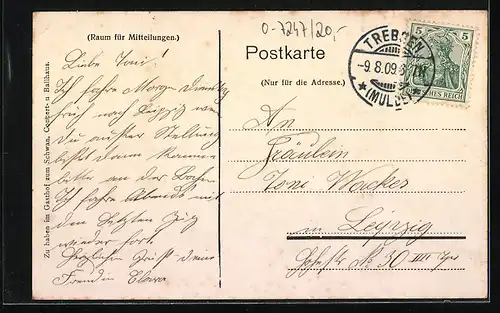 (Raum für Mitteilungen.)
O-7247/20,-
Postkarte
(Nur für die Adresse.)
TREBSEN
-9.8.09.
(MULDE)
5 5
DEUTSCHES REICH
Zu haben im Gasthof zum Schwan, Concert- u. Ballhaus.
Liebe Toni!
Ich fahre Morgen Dienstag
früh nach Leipzig wenn
Du außer Stellung
bist dann komme
bitte an der Bahn
Ich fahre Abends mit
den letzten Zug
wieder fort.
Herzlichen Gruß deine
Freundin Clara
An
Fräulein
Toni
in Leipzig
No 30 III